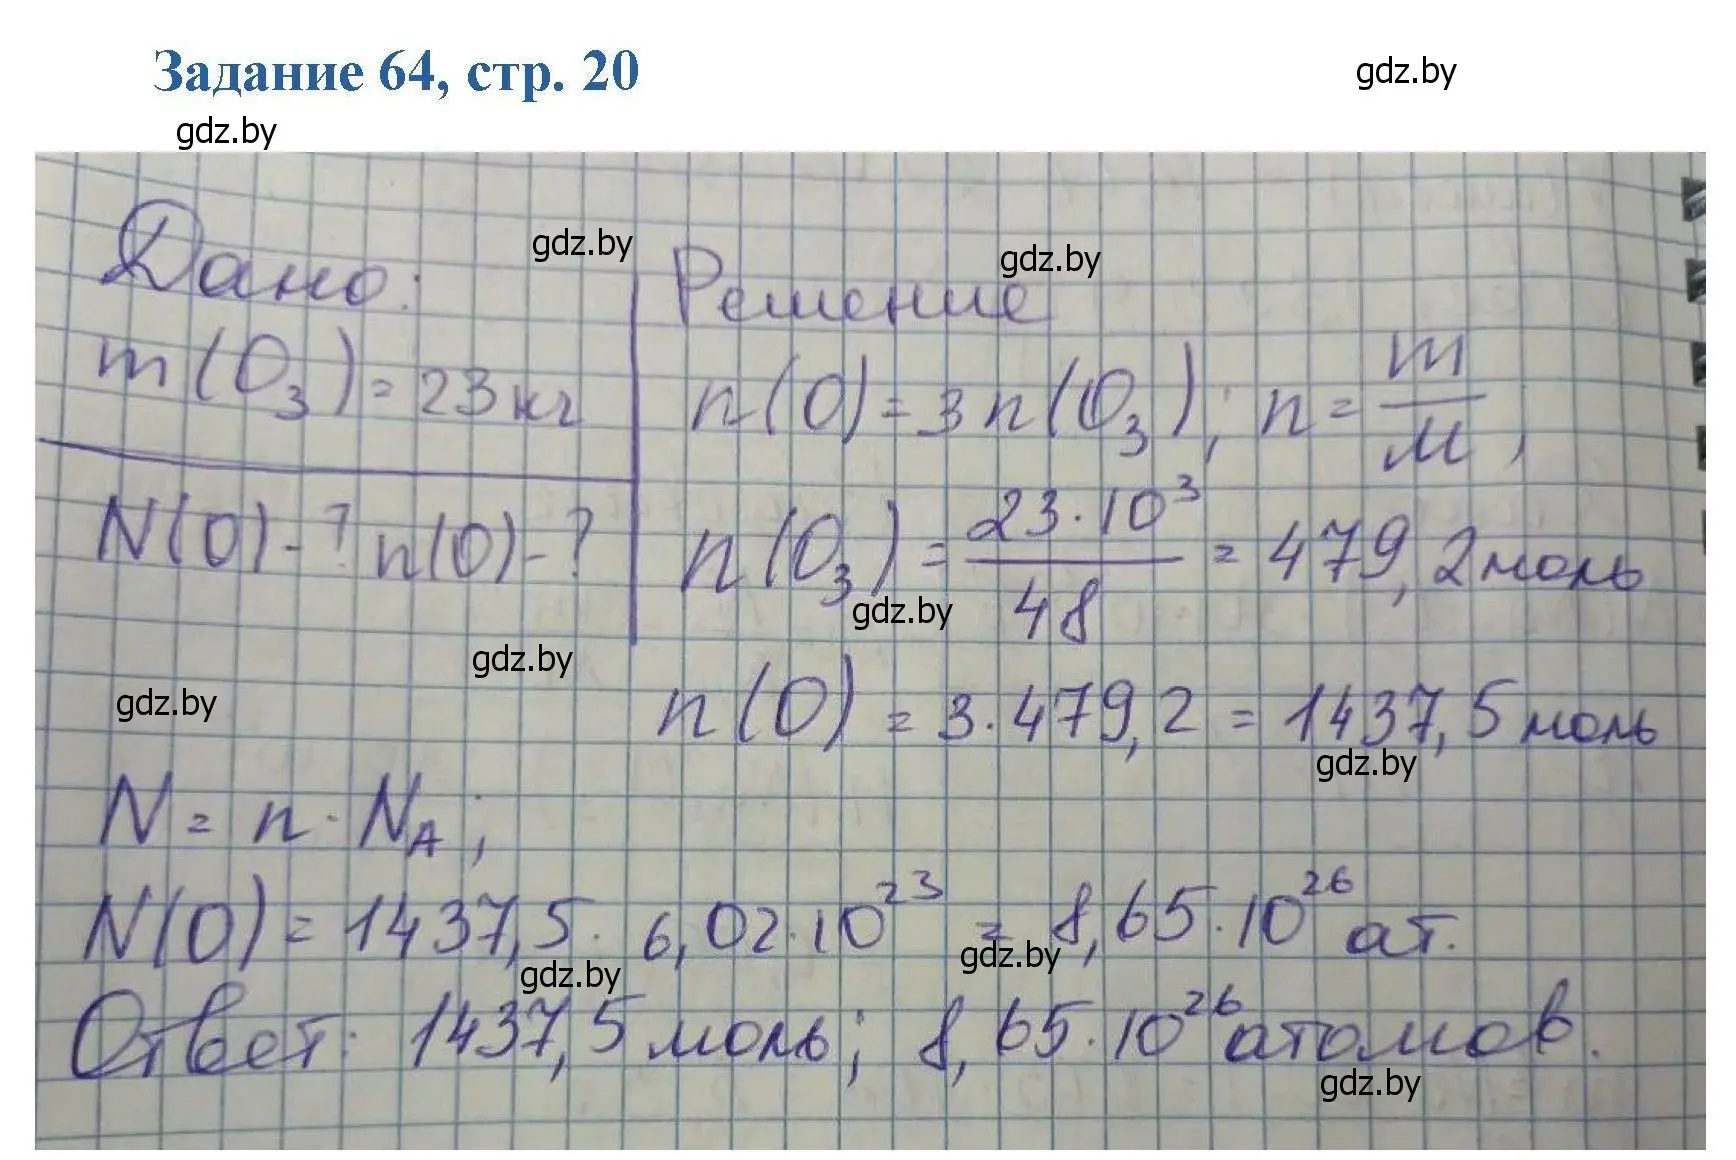 Задание 64, стр. 20
gdz.by
gdz.by
Дано:
gdz.by
m(O₃) = 23 кг
N(O) - ? n(O) - ?
Решение
gdz.by
n(O) = 3n(O₃); n = m/M;
n(O₃) = 23·10³/48 = 479,2 моль
gdz.by
gdz.by
gdz.by
n(O) = 3·479,2 = 1437,5 моль
gdz.by
N = n·N_A;
N(O) = 1437,5· 6,02·10²³ = 8,65·10²⁶ ат.
gdz.by
gdz.by
Ответ: 1437,5 моль; 8,65·10²⁶ атомов.
gdz.by